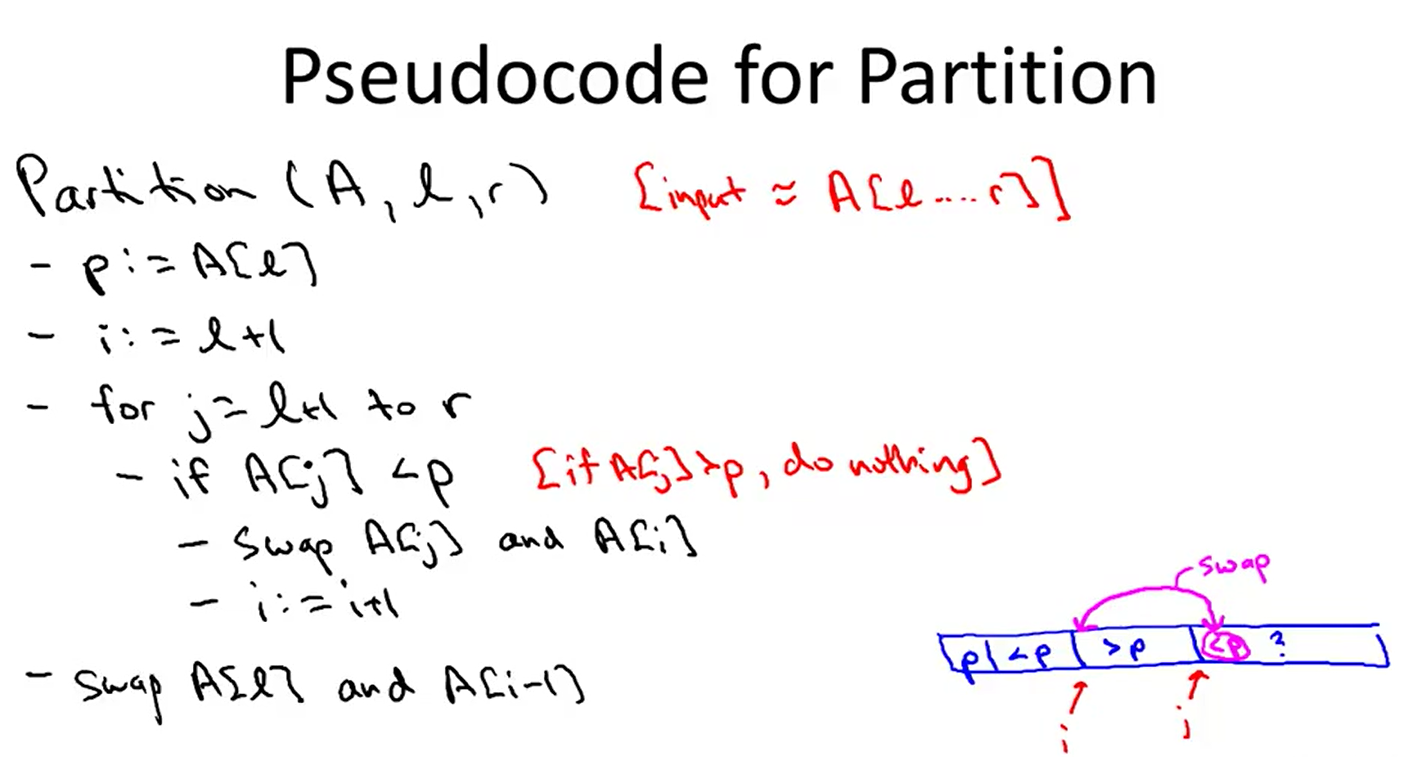 Pseudocode for Partition
Partition (A, l, r) [input ≈ A[l....r]]
- p := A[l]
- i := l+1
- for j = l+1 to r
- if A[j] < p [if A[j] > p, do nothing]
- swap A[j] and A[i]
- i := i+1
- swap A[l] and A[i-1]
swap
p <p >p <p ?
i j